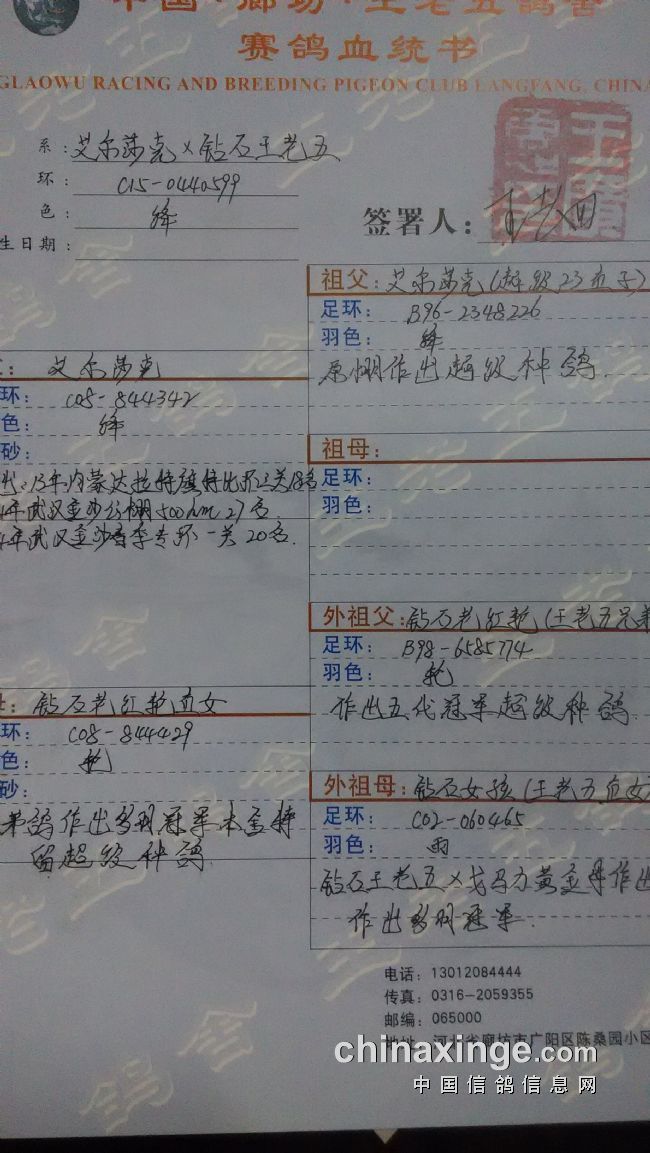 中国·廊坊·王老五鸽舍
赛鸽血统书
GLAOWU RACING AND BREEDING PIGEON CLUB LANGFANG, CHINA
系: 艾尔莎克×钻石王老五
环: C15-0440599
色: 绛
生日期:
签署人:
祖父: 艾尔莎克(超级23直子)
足环: B96-2348226
羽色: 绛
原棚作出超级种鸽.
: 艾尔莎克
环: C08-844342
色: 绛
砂:
13年内蒙达拉特旗特比环三关18名
年武汉金沙公棚500km 27名
年武汉金沙春季专环一关20名.
祖母:
足环:
羽色:
外祖父: 钻石老红轮(王老五兄弟
足环: B98-6585774
羽色: 轮
作出五代冠军超级种鸽.
母: 钻石老红轮直女
环: C08-844429
色: 轮
砂:
鸽作出多羽冠军本舍特
留超级种鸽
外祖母: 钻石女孩(王老五直女
足环: C02-060465
羽色: 雨
钻石王老五×戈马力黄金母作出
作出多羽冠军.
电话: 13012084444
传真: 0316-2059355
邮编: 065000
地址: 河北省廊坊市广阳区陈桑园小区
chinaxinge.com
中国信鸽信息网